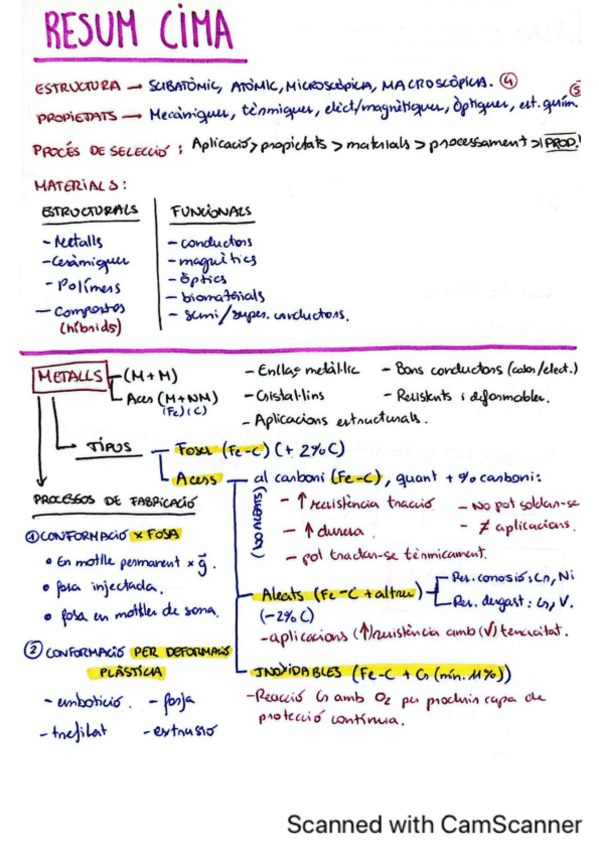 RESUM CIMA
ESTRUCTURA → SUBATÒMIC, ATÒMIC, MICROSCÒPICA, MACROSCÒPICA. ④
PROPIETATS → Mecàniques, tèrmiques, elèct/magnètiques, òptiques, est. quím. ⑤
PROCÉS DE SELECCIÓ : Aplicació > propietats > materials > processament > PROD.
MATERIALS:
ESTRUCTURALS
- Metalls
- Ceràmiques
- Polímers
- Compostos
(híbrids)
FUNCIONALS
- conductors
- magnètics
- òptics
- biomaterials
- semi/super. conductors.
METALLS
(M+M)
Acer (M+NM)
(Fe) (C)
- Enllaç metàl·lic
- Cristal·lins
- Aplicacions estructurals.
- Bons conductors (calor/elect.)
- Resistents i deformables.
TIPUS
Fosa (Fe-C) (+ 2% C)
Acers
al carboni (Fe-C), quant + % carboni:
(NO ALEATS)
- ↑ resistència tracció
- ↑ duresa
- pot tractar-se tèrmicament.
- No pot soldar-se
- ≠ aplicacions.
Aleats (Fe-C + altres)
(-2% C)
Res. corrosió: Cr, Ni
Res. desgast: Cr, V.
- aplicacions (↑) resistència amb (√) tenacitat.
INOXIDABLES (Fe-C + Cr (mín. 11%))
- Reacció Cr amb O₂ per produir capa de
protecció contínua.
PROCESSOS DE FABRICACIÓ
① CONFORMACIÓ X FOSA
• En motlle permanent x g⃗.
• fosa injectada.
• fosa en motlles de sorra.
② CONFORMACIÓ PER DEFORMACIÓ
PLÀSTICA
- embotició.
- forja
- trefilat
- extrusió
Scanned with CamScanner